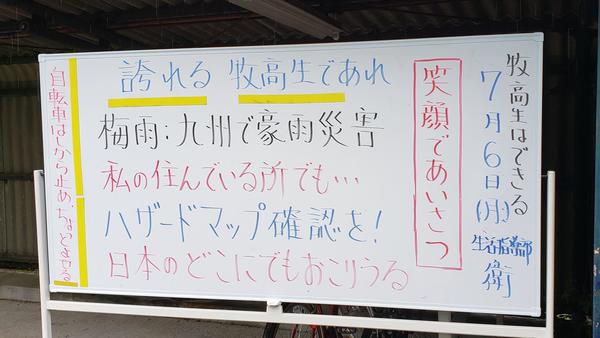 牧高生はできる
7月6日(月)
生活指導部
衛
笑顔であいさつ
誇れる 牧高生であれ
梅雨:九州で豪雨災害
私の住んでいる所でも…
ハザードマップ確認を!
日本のどこにでもおこりうる
自転車はしから止め、